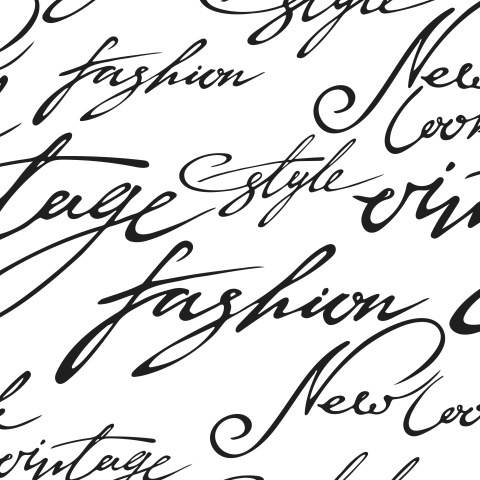 style
fashion
New
Look
tage
style
vin
fashion
New
Loo
vintage